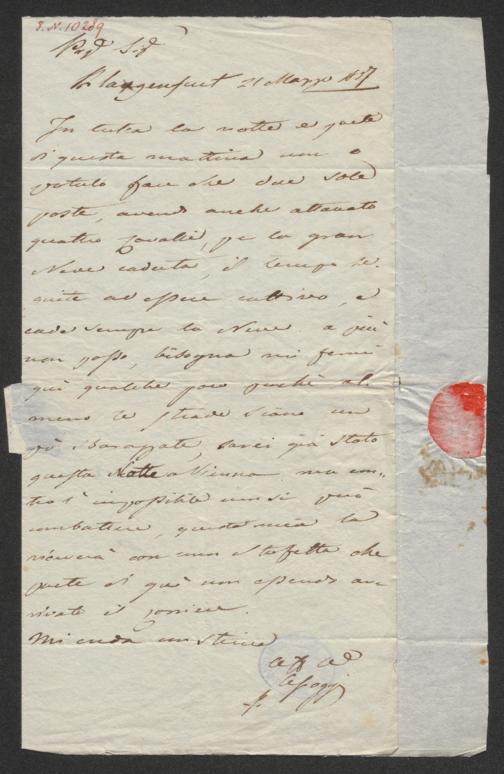 I. N. 10289
Klagenfurt 21 Marzo 1837
In tutta la notte e parte
di questa mattina non o
potuto fare che due sole
poste, avendo anche attacato
quattro Cavalli, pe la gran
Neve caduta, il tempo se-
guite ad essere cattivo, e
cade sempre la Neve. a più
non posso, bisogna mi fermi
qui qualche poco perchè al-
meno le strade siano un
pò sbarazate, sarei già stato
questa Notte a Vienna ma con-
tro l' impossibile non si può
combattere, questa mia la
riceverà con una staffetta che
parte di quà non essendo an-
rivato il corriere.
Mi creda con stima